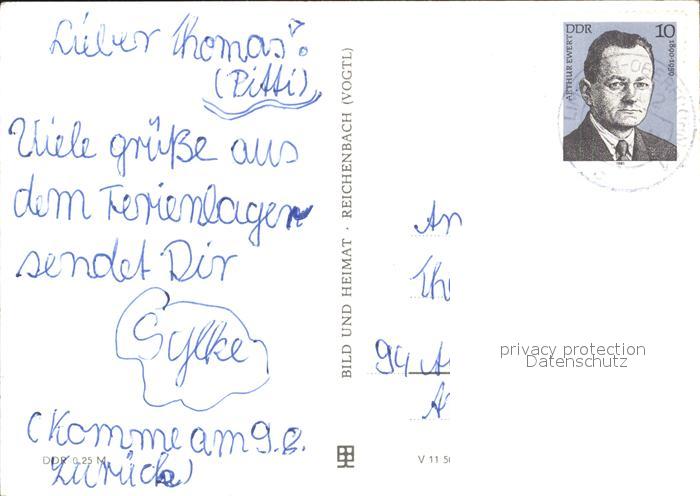 Lieber Thomas!
(Pitti)
Viele grüße aus
dem Ferienlager
sendet Dir
Sylke
(Komme am 9.8.
zurück)
DDR 0,25 M
BILD UND HEIMAT · REICHENBACH (VOGTL)
V 11 50
DDR 10
ARTHUR EWERT
1890-1959
1981
An
Th
94 A
A
privacy protection
Datenschutz